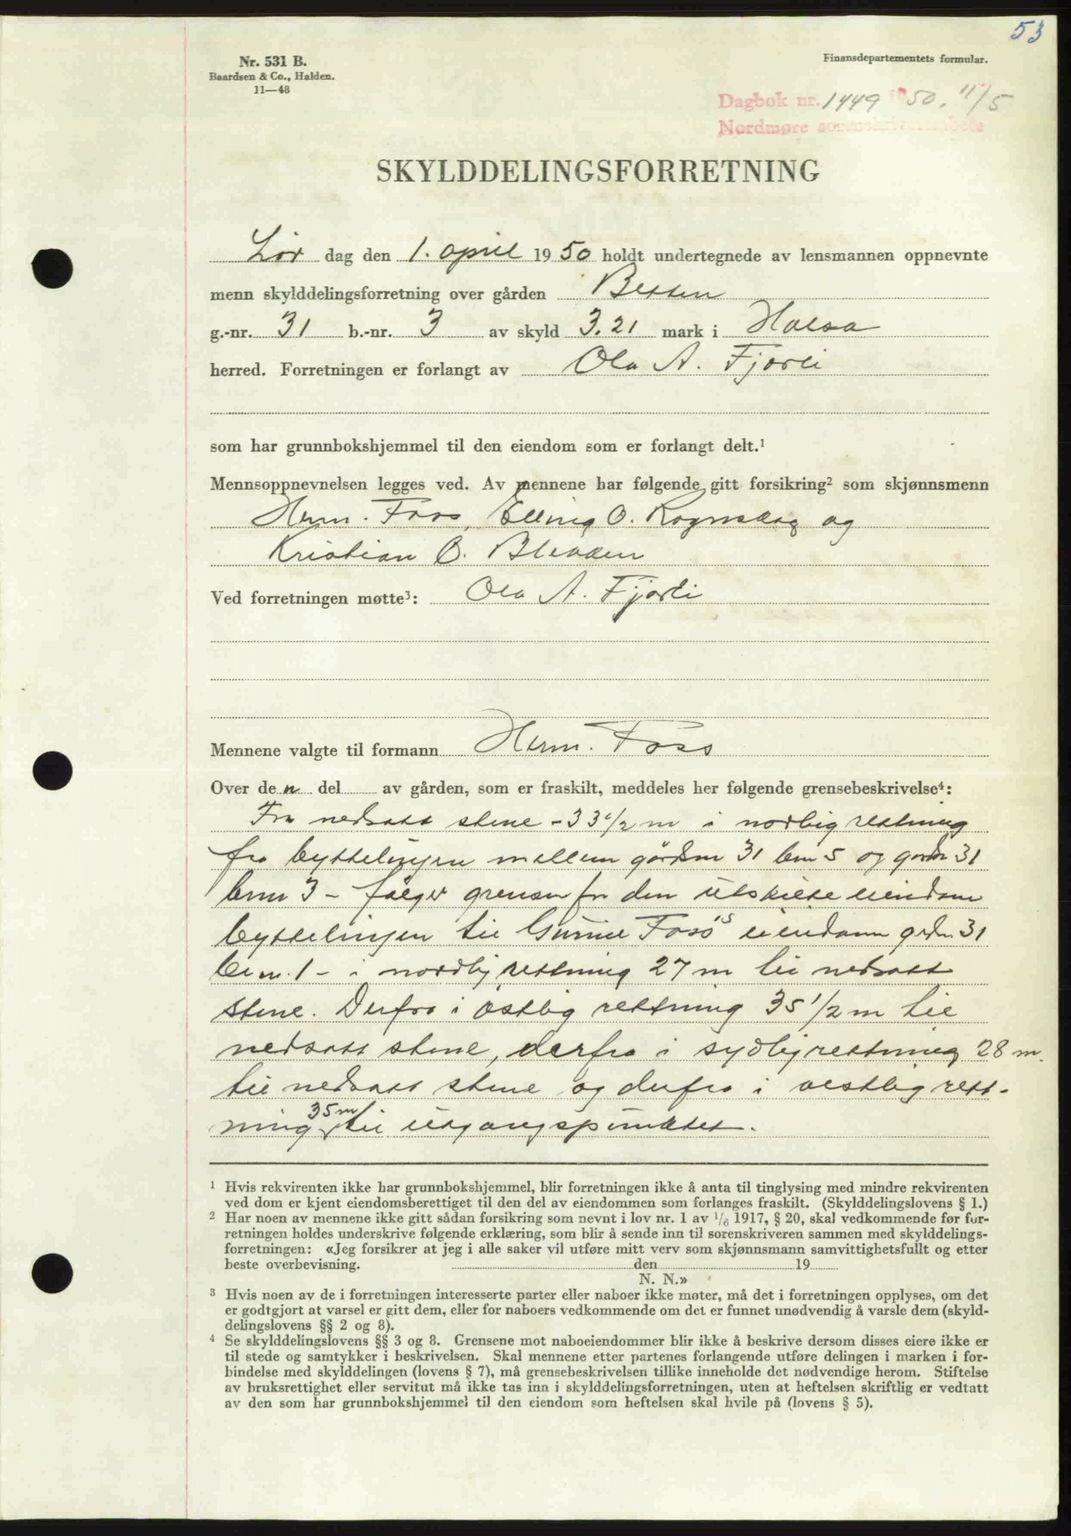 53
Nr. 531 B.
Baardsen & Co., Halden.
11—48
Finansdepartementets formular.
Dagbok nr. 1449 1950, 11/5
Nordmøre sorenskriverembete
SKYLDDELINGSFORRETNING
Lør dag den 1. april 1950 holdt undertegnede av lensmannen oppnevnte
menn skylddelingsforretning over gården Betten
g.-nr. 31 b.-nr. 3 av skyld 3.21 mark i Halsa
herred. Forretningen er forlangt av Ola A. Fjorli
som har grunnbokshjemmel til den eiendom som er forlangt delt.¹
Mennsoppnevnelsen legges ved. Av mennene har følgende gitt forsikring² som skjønnsmenn
Herm. Foss, Elling O. Rognskog og
Kristian O.
Ved forretningen møtte³: Ola A. Fjorli
Mennene valgte til formann Herm. Foss
Over den del av gården, som er fraskilt, meddeles her følgende grensebeskrivelse⁴:
Fra nedsatt stene - 33 1/2 m i nordlig rettning
fra byttelinjen mellem gårdnr 31 bnr 5 og gårdnr 31
brnr 3 - følger grensen for den utskilte eiendom
byttelinjen til Gunnar Foss's eiendom grdnr. 31
br.nr. 1 - i nordlig rettning 27 m til nedsatt
stene. Derfra i østlig rettning 35 1/2 m til
nedsatt stene, derfra i sydlig rettning 28 m.
til nedsatt stene og derfra i vestlig rett-
ning 35 m til utgangspunktet.
¹ Hvis rekvirenten ikke har grunnbokshjemmel, blir forretningen ikke å anta til tinglysing med mindre rekvirenten
ved dom er kjent eiendomsberettiget til den del av eiendommen som forlanges fraskilt. (Skylddelingslovens § 1.)
² Har noen av mennene ikke gitt sådan forsikring som nevnt i lov nr. 1 av 1/6 1917, § 20, skal vedkommende før for-
retningen holdes underskrive følgende erklæring, som blir å sende inn til sorenskriveren sammen med skylddelings-
forretningen: «Jeg forsikrer at jeg i alle saker vil utføre mitt verv som skjønnsmann samvittighetsfullt og etter
beste overbevisning. den 19
N. N.»
³ Hvis noen av de i forretningen interesserte parter eller naboer ikke møter, må det i forretningen opplyses, om det
er godtgjort at varsel er gitt dem, eller for naboers vedkommende om det er funnet unødvendig å varsle dem (skyld-
delingslovens §§ 2 og 8).
⁴ Se skylddelingslovens §§ 3 og 8. Grensene mot naboeiendommer blir ikke å beskrive dersom disses eiere ikke er
til stede og samtykker i beskrivelsen. Skal mennene etter partenes forlangende utføre delingen i marken i for-
bindelse med skylddelingen (lovens § 7), må grensebeskrivelsen tillike inneholde det nødvendige herom. Stiftelse
av bruksrettighet eller servitut må ikke tas inn i skylddelingsforretningen, uten at heftelsen skriftlig er vedtatt
av den som har grunnbokshjemmel til den eiendom som heftelsen skal hvile på (lovens § 5).